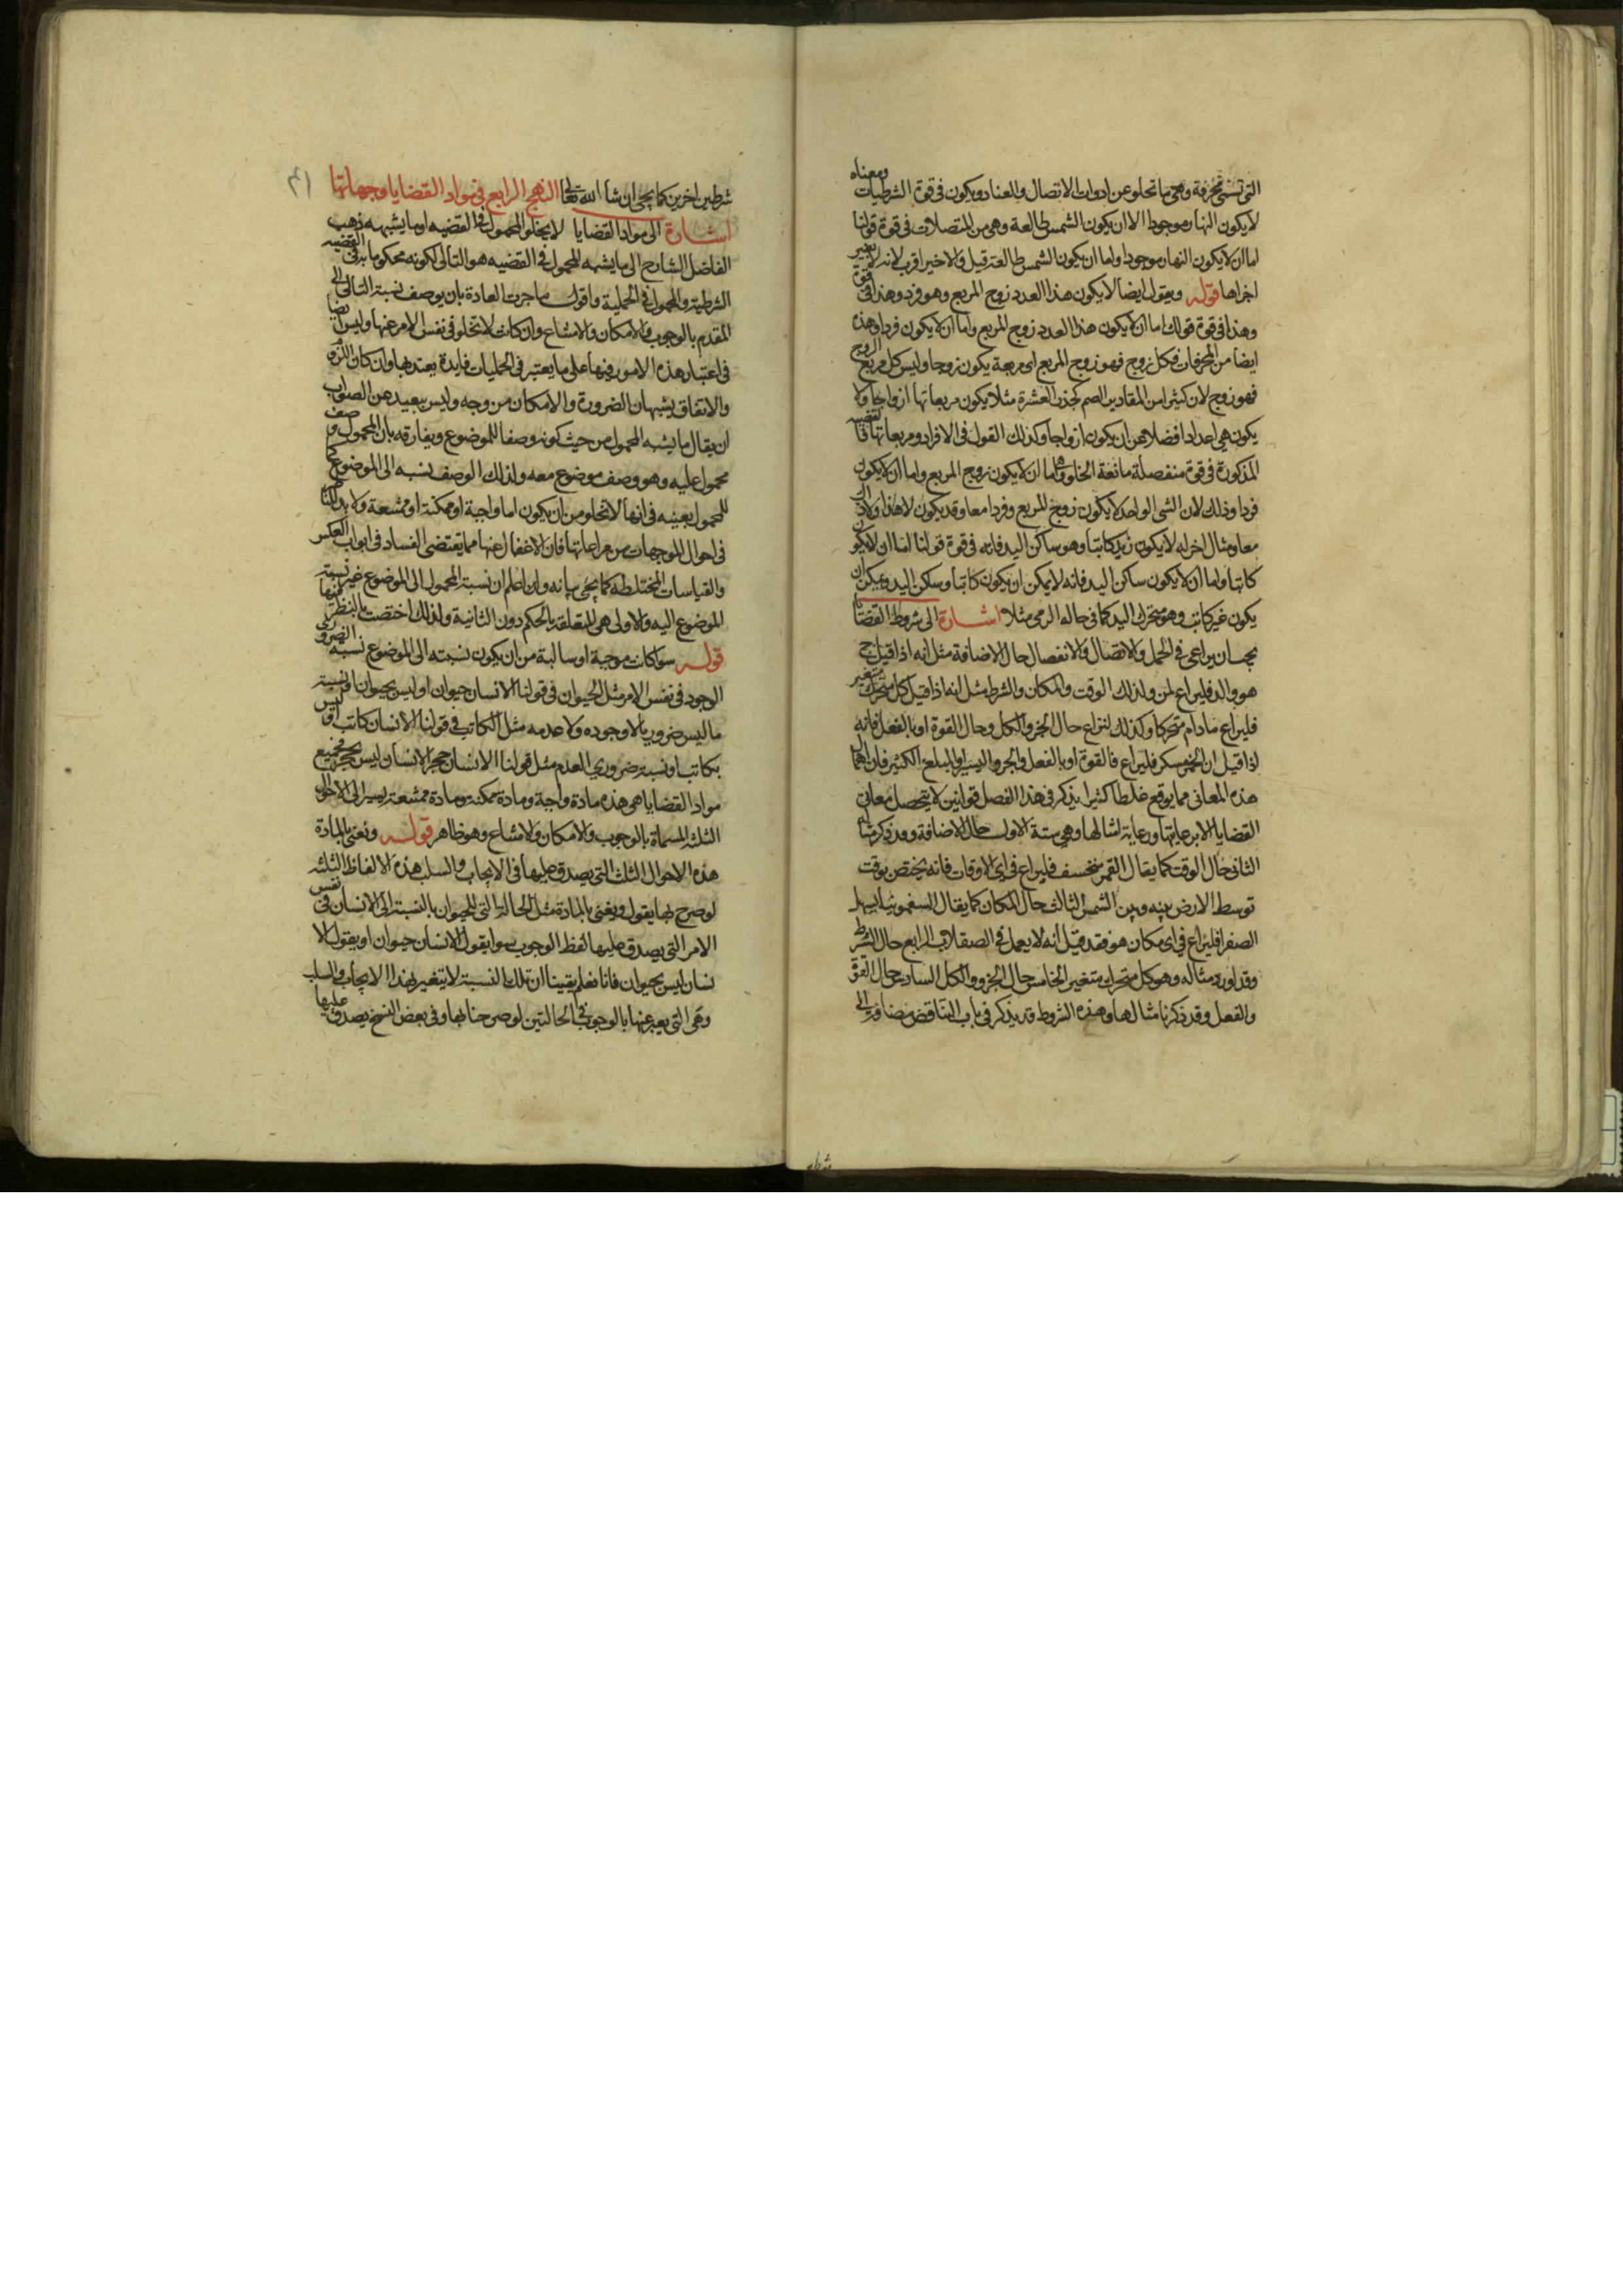 التى تسمى محرفة وهى ما تخلو عن ادوات الاتصال والعناد ويكون فى قوة الشرطيات ومعناه
لا يكون النهار موجودا الا ان يكون الشمس طالعة وهى من المتصلات فى قوة قولنا
اما ان لا يكون النهار موجودا واما ان يكون الشمس طالعة قيل والاخير اقرب لانه لا تغير
اجزاها قوله ويقول ايضا لا يكون هذا العدد زوج المربع وهو فرد وهذا فى قوة
وهذا فى قوة قولك اما ان لا يكون هذا العدد زوج المربع واما ان لا يكون فردا وهذه
ايضا من المحرفات فكل زوج فهو زوج المربع اى مربعه يكون زوجا وليس كل مربع الزوج
فهو زوج لان كثيرا من المقادير الصم كجذر العشرة مثلا يكون مربعاتها ازواجا ولا
يكون هى اعدادا فضلا عن ان يكون ازواجا وكذلك القول فى الافراد ومربعاتها فالقضيه
المذكورة فى قوة منفصلة مانعة الخلو وهى اما ان لا يكون زوج المربع واما ان لا يكون
فردا وذلك لان الشى الواحد لا يكون زوج المربع وفردا معا وقد يكون لا هذا ولا ذاك
معا ومثال اخر له لا يكون زيد كاتبا وهو ساكن اليد فانه فى قوة قولنا اما ان لا يكون
كاتبا واما ان لا يكون ساكن اليد فانه لا يمكن ان يكون كاتبا وسكن اليد ويمكن ان
يكون غير كاتب وهو متحرك اليد كما فى حاله الرمى مثلا اشارة الى شروط القضايا
يجب ان يراعى فى الحمل والاتصال والانفصال حال الاضافة مثل انه اذا قيل ج
هو والد فليراع لمن وكذلك الوقت والمكان والشرط مثل انه اذا قيل كل متحرك متغير
فليراع مادام متحركا وكذلك ليراع حال الجزو والكل وحال القوة او بالفعل فانه
اذا قيل ان الخمر مسكر فليراع فا لقوة او بالفعل والجرو اليسير او المبلغ الكثير فان اهمال
هذه المعانى مما يوقع غلطا كثيرا يذكر فى هذا الفصل قوانين لا يتحصل معانى
القضايا الا برعايتها ورعاية امثالها وهى ستة الاول حال الاضافة وقد ذكر مثاله
الثانى حال الوقت كما يقال القمر منخسف فليراع فى اى الاوقات فانه يختص بوقت
توسط الارض بينه وبين الشمس الثالث حال المكان كما يقال السقمونيا يسهل
الصفرا فليراع فى اى مكان هو فقد قيل انه لا يعمل فى الصقلاب الرابع حال الشرط
وقد اورد مثاله وهو كل متحرك متغير الخامس حال الجزو والكل السادس حال القوة
والفعل وقد ذكرنا مثالها وهذه الشروط قد يذكر فى باب التناقض مضافة الى
شرطين
شرطين اخرين كما يجى ان شا الله تعالى النهج الرابع فى مواد القضايا وجهاتها
اشارة الى مواد القضايا لا يخلو المحمول فى القضيه او ما يشبهه ذهب
الفاضل الشارح الى ما يشبهه المحمول فى القضيه هو التالى لكونه محكوما به فى القضيه
الشرطية والمحمول فى الحملية واقول ما جرت العادة بان يوصف نسبة التالى الى
المقدم بالوجوب والامكان والامتناع وان كانت لا تخلو فى نفس الامر عنها وليس ايضا
فى اعتبار هذه الامور فيها على ما يعتبر فى الحمليات فايدة يعتد بها وان كان اللزوم
والاتفاق يشبهان الضرورة والامكان من وجه وليس ببعيد عن الصواب
ان يقال ما يشبه المحمول من حيث كونه وصفا للموضوع ويفارقه بان المحمول وصف
محمول عليه وهو وصف موضوع معه ولذلك الوصف نسبه الى الموضوع كما
للمحمول بعينه فى انها لا تخلو من ان يكون اما واجبة او ممكنة او ممتنعة ولا بد للناظر
فى احوال الموجهات من مراعاتها فان الاغفال عنها مما يقتضى الفساد فى ابواب العكس
والقياسات المختلطه كما يجى بيانه واذا علم ان نسبة المحمول الى الموضوع غير نسبة
الموضوع اليه والاولى هى المتعلقة بالحكم دون الثانية ولذلك اختصت بالنظر فيها
قوله سوا كانت موجبة او سالبة من ان يكون نسبته الى الموضوع نسبه الضرورى
الوجود فى نفس الامر مثل الحيوان فى قولنا الانسان حيوان او ليس بحيوان او نسبة
ما ليس ضروريا لا وجوده ولا عدمه مثل الكاتب فى قولنا الانسان كاتب او ليس
بكاتب او نسبة ضرورى العدم مثل قولنا الانسان حجر الانسان ليس بحجر فجميع
مواد القضايا هى هذه مادة واجبة ومادة ممكنة ومادة ممتنعة يشير الى الاحوال
الثلثة المسماة بالوجوب والامكان والامتناع وهو ظاهر قوله ونعنى بالمادة
هذه الاحوال الثلث التى يصدق عليها فى الايجاب والسلب هذه الالفاظ الثلثه
لو صرح بها يقول ويعنى بالمادة مثل الحالة التى للحيوان بالنسبة الى الانسان فى نفس
الامر التى يصدق عليها لفظ الوجوب سوا يقول الانسان حيوان او يقول الا
نسان ليس بحيوان فانا نعلم يقينا ان تلك النسبة لا يتغير بهذا الايجاب والسلب
وهى التى يعبر عنها بالوجوب فى الحالتين لو صرحنا بها وفى بعض النسخ يصدق عليها